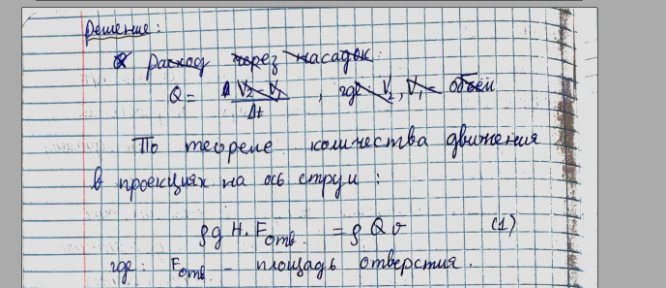 Решение:
Расход через насадок
Q = V₂ - V₁ / Δt , где V₂, V₁ - объём
По теореме количества движения
в проекциях на ось струи :
ρgH·Fотв. = ρQv (1)
где: Fотв - площадь отверстия.